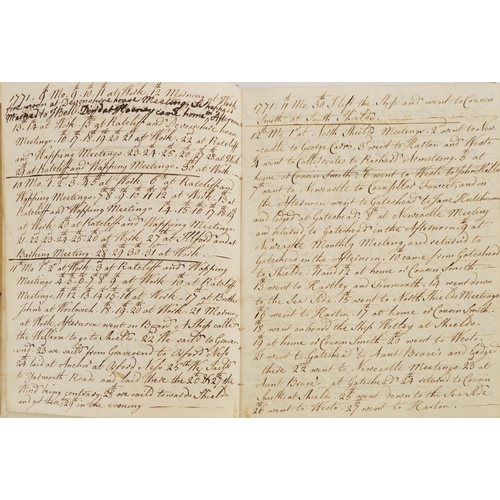 1771. 8th Mo. 9th. 10th. 11 at Work. 12th Morning at Work
fore noon at Devonshire house Meeting,
Married to Bell Died at Hackney came home Afternoon
13. 14 at Work. 15 at Ratcliff and Devonshire house
Meetings. 16th. 17. 18. 19. 20. 21 at Work. 22 at Ratcliff
and Wapping Meetings. 23. 24. 25. 26. 27. 28 at Work
29 at Ratcliff and Wapping Meetings. 30 at Work
10th Mo. 1. 2. 3. 4. 5 at Work 6 at Ratcliff and
Wapping Meetings. 7. 8. 9. 10. 11. 12 at Work. 13 at
Ratcliff and Wapping Meetings. 14. 15. 16. 17. 18. 19
at Work. 20 at Ratcliff and Wapping Meetings.
21. 22. 23. 24. 25. 26 at Work. 27 at Ilford and at
Barking Meeting. 28. 29. 30. 31 at Work.
11th Mo. 1. 2 at Work. 3 at Ratcliff and Wapping
Meetings 4. 5. 6. 7. 8. 9 at Work. 10 at Ratcliff
Meeting. 11. 12. 13. 14. 15. 16 at Work. 17 at Brother
John's at Woolwich. 18. 19. 20 at Work. 21 Morning
at Work, Afternoon went on Board a Ship called
the William to go to Shields. 22 We sail'd to Graves=
=end 23 we sail'd from Gravesend to Orford Ness
24 laid at Anchor at Orford Ness 25th We Sail'd
to Yarmouth Roads and laid there the 26 & 27 the
Wind being contrary. 28 we sail'd towards Shields
and got there 29th in the evening
1771. 11th Mo. 30 I left the Ship and went to Cousin
Smith at South Shields.
12th Mo. 1st at North Shields Meeting. 2 went to New=
castle to George Cars. 3 went to Harton and Westo
4 went to Cullercoates to Richard Armstrong. 5 at
home at Cousin Smith's. 6 went to Westo to John Hallen
7th went to Newcastle to Counsellor Fawcett, and in
the Afternoon went to Gateshead to Jane
and lodged at Gateshead, 8th at Newcastle Meeting
and returned to Gateshead in the Afternoon. 9 at
Newcastle Monthly Meeting and returned to
Gateshead in the Afternoon. 10 came from Gateshead
to Shields. 11 and 12 at home at Cousin Smith's.
13 went to Hartley and Tinmouth. 14 went down
to the Sea Side. 15 went to North Shields Meeting
16 went to Harton. 17 at home at Cousin Smith's.
18 went on board the Ship Whitby at Shields.
19 at home at Cousin Smith's 20 went to Westo.
21 went to Gateshead to Aunt Brace's and lodged
there 22 went to Newcastle Meeting. 23 at
Aunt Brace's at Gateshead 24 returned to Cousin
Smith at Shields. 25th went down to the Sea Side
26 went to Westo. 27 went to Harton.